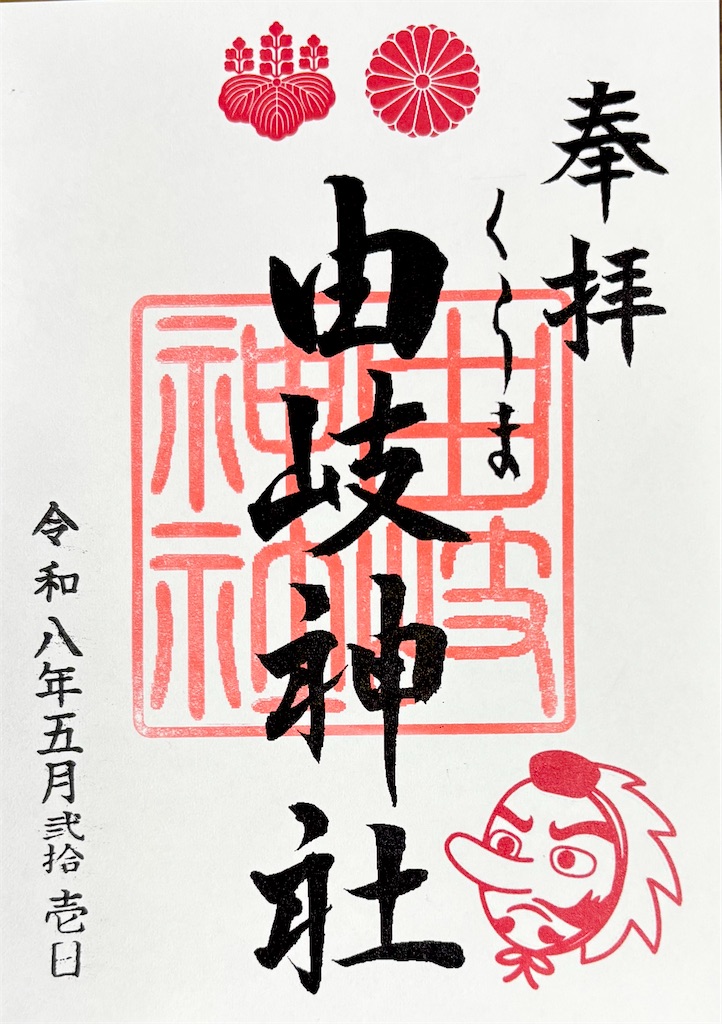 奉拝
くらま
由岐神社
由岐神社
令和八年五月弐拾壱日